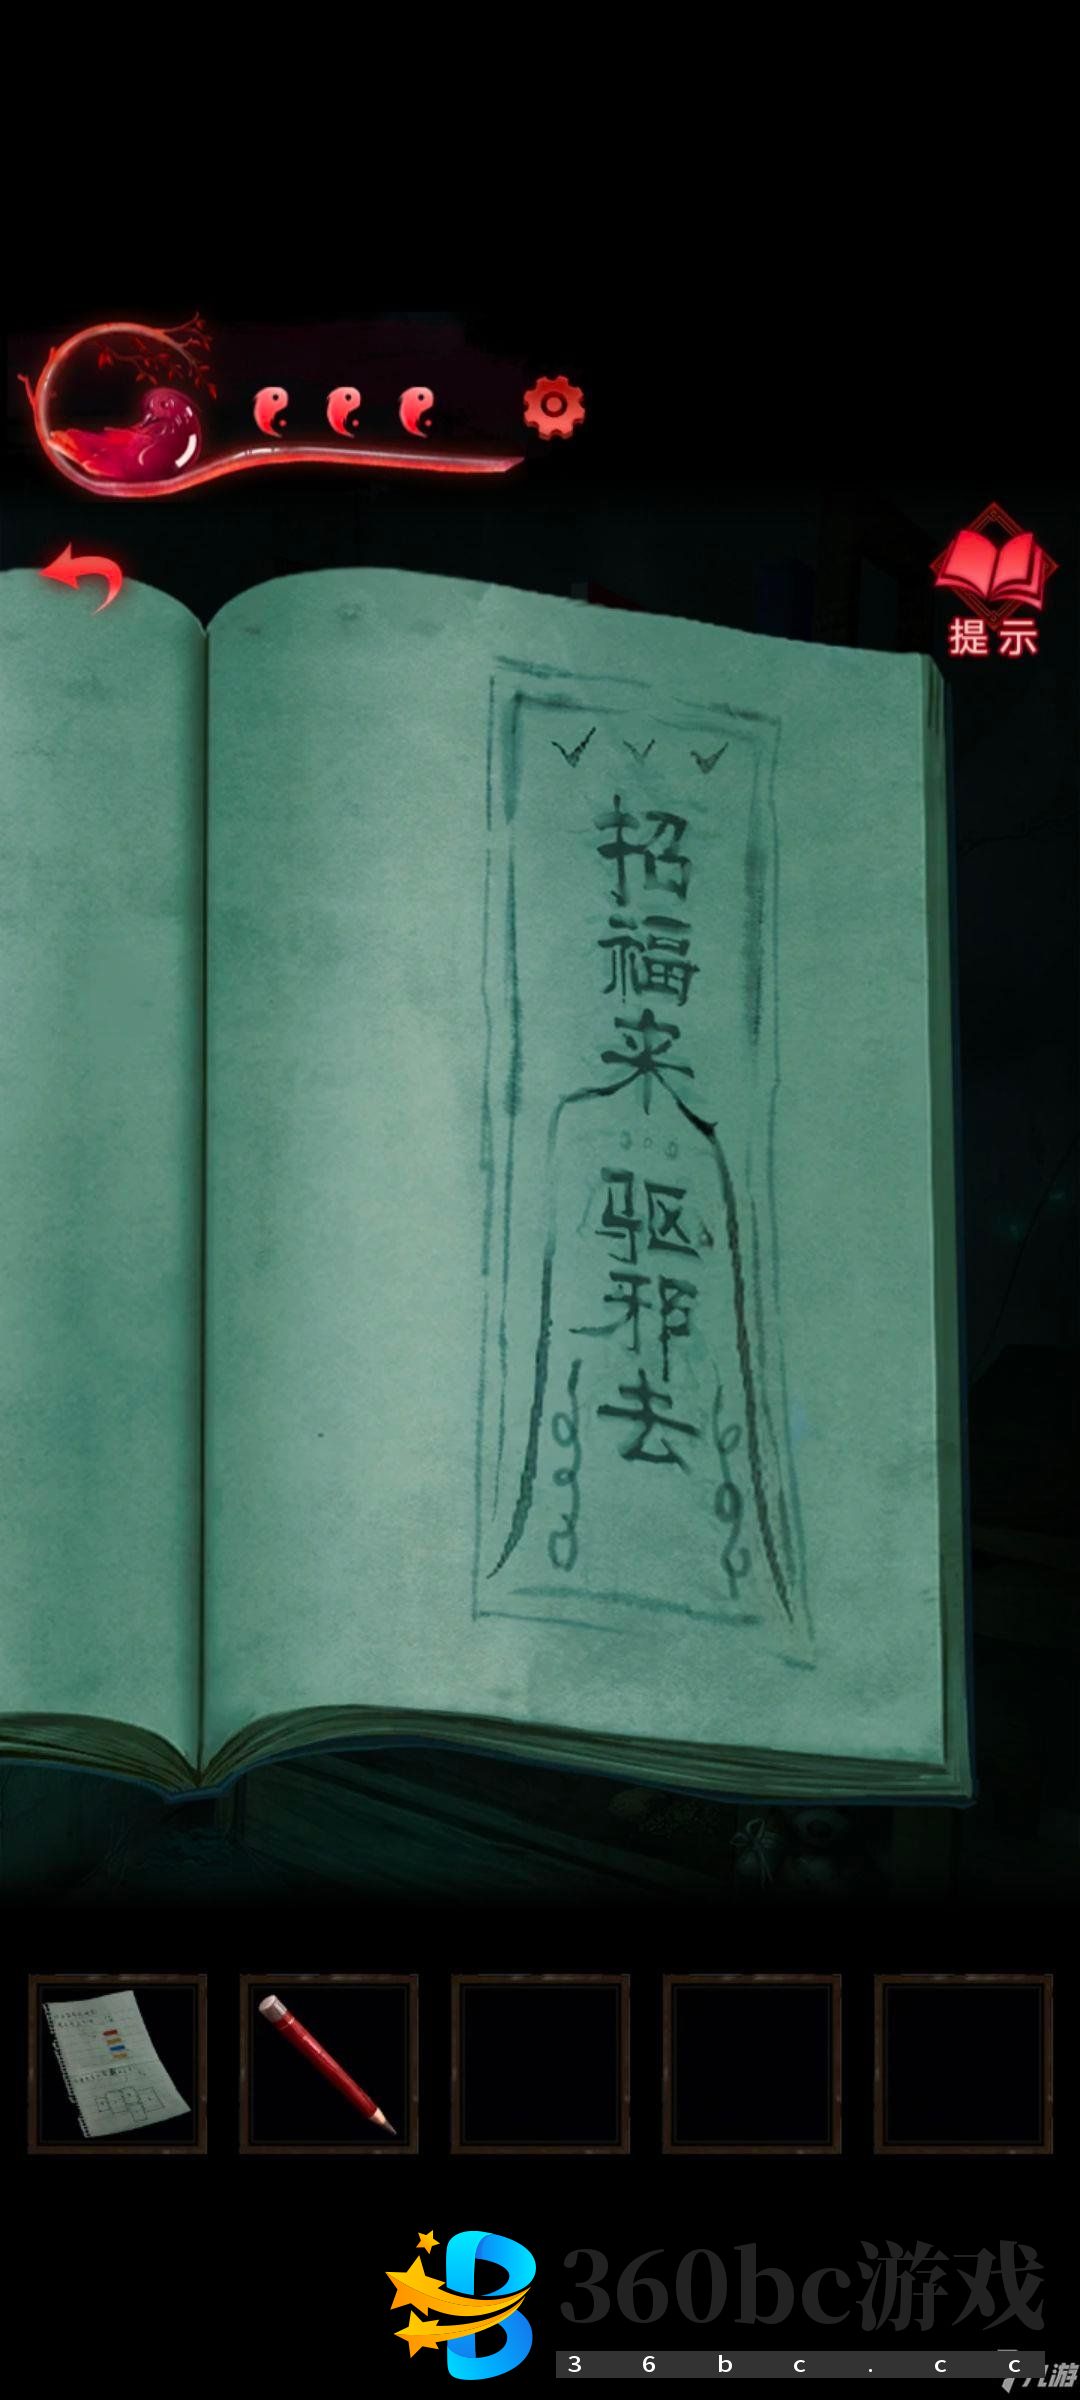 提示
招福来
驱邪去
360bc游戏
36bc.cc
九游